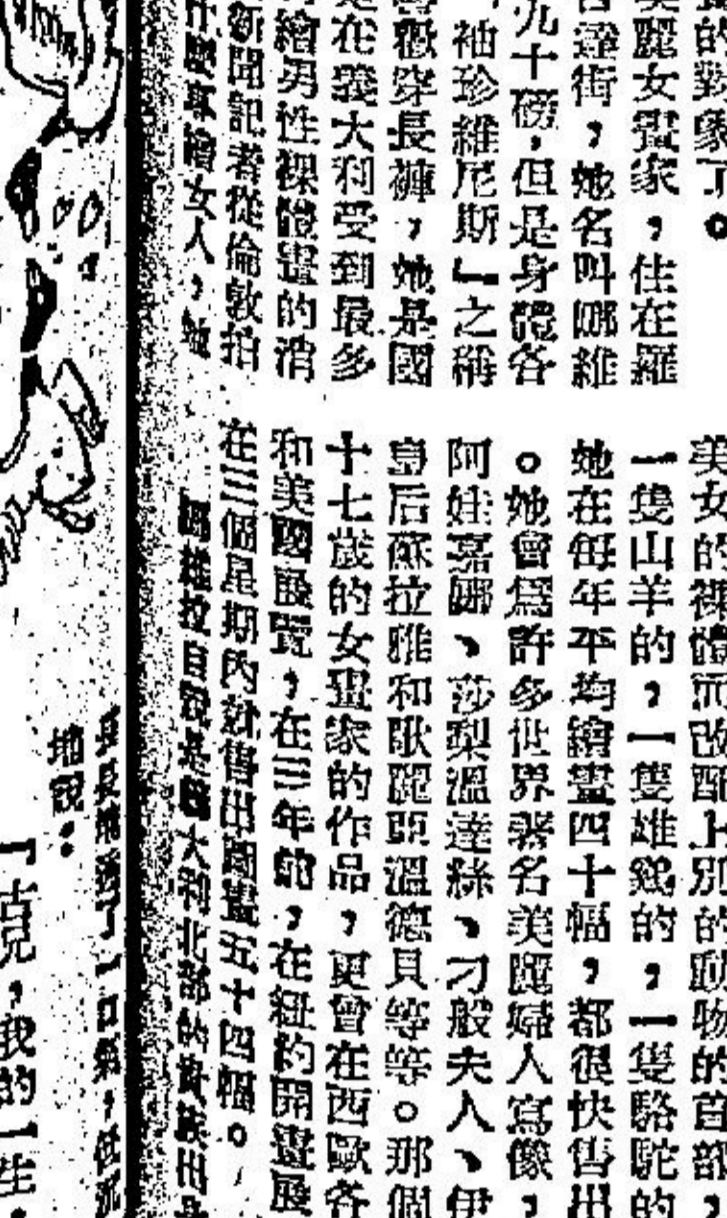 的對象了。
麗女畫家，住在羅
達街，她名叫娜維
九十磅，但是身體各
袖珍維尼斯」之稱
歡穿長褲，她是國
在義大利受到最多
繪男性裸體畫的消
新聞記者從倫敦拍
繪女人，她
美女的裸體而改配上別的動物的首部，
一隻山羊的，一隻雄鷄的，一隻駱駝的
她在每年平均繪畫四十幅，都很快售出
。她會爲許多世界著名美麗婦人寫像，
阿娃嘉娜、莎梨溫達絲、刁般夫人、伊
皇后蘇拉雅和歌麗亞溫德貝等等。那個
十七歲的女畫家的作品，更會在西歐各
和美國展覽，在三年前，在紐約開畫展
在三個星期內就售出圖畫五十四幅。
娜維拉自說是義大利北部的貴族出身
了一口氣，
地說：
「古兄，我的一生，